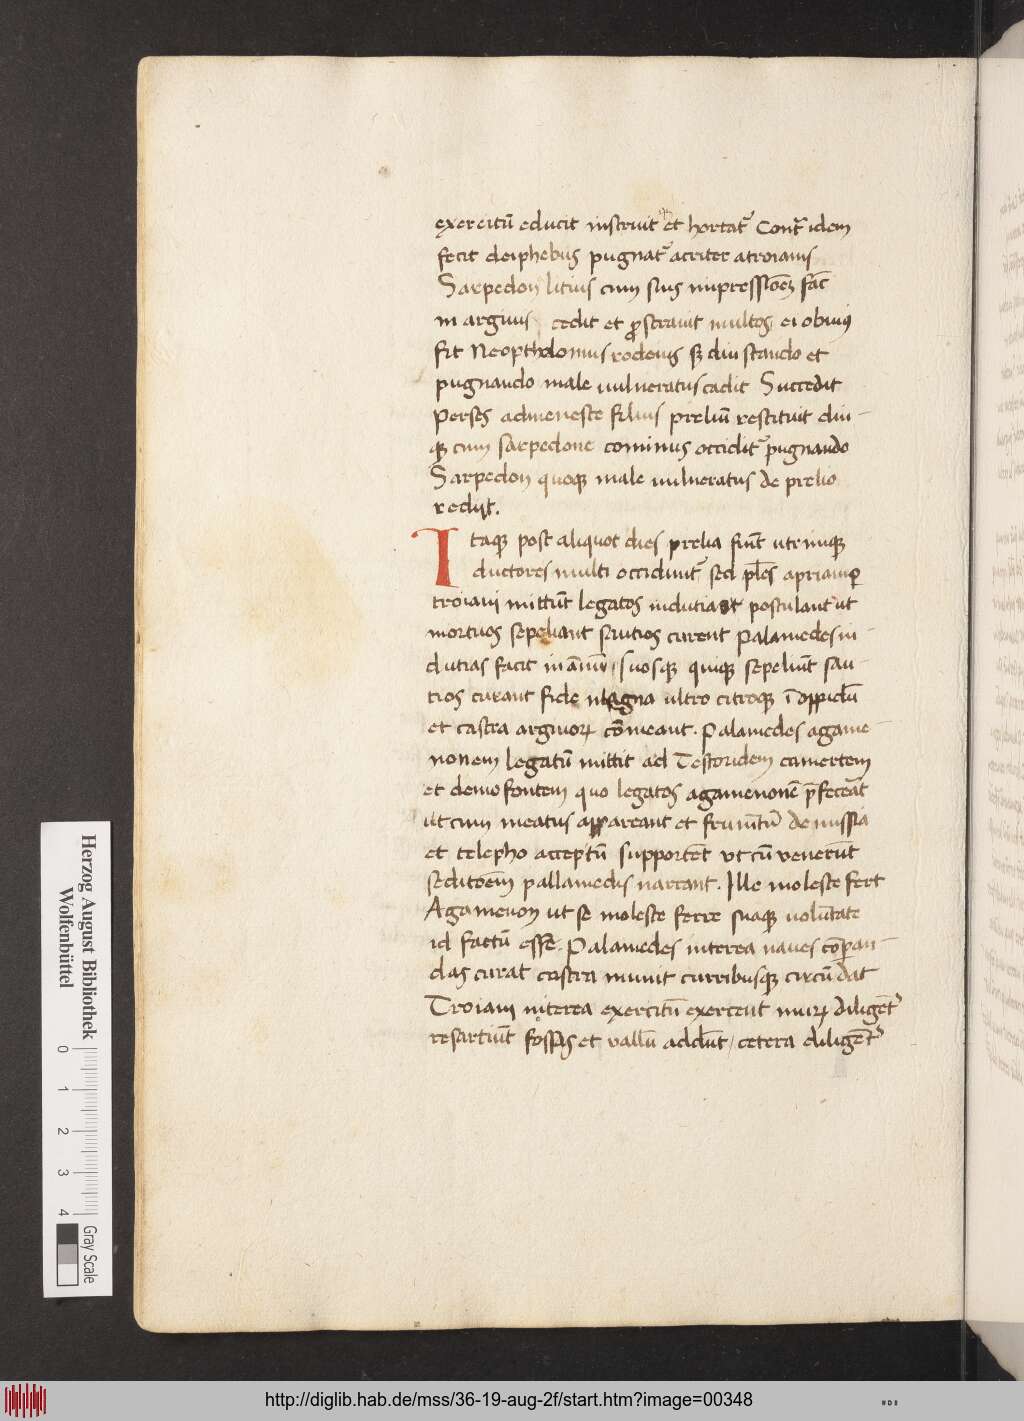 exercitū educit instruit et hortat᷑ Cont᷑ idem
fecit deiphebus pugnat᷑ acriter a troianis
Sarpedon litius cum suis impressiōeꝫ fac̄
in argiuis cedit et ꝓstrauit multos ei obuiꝰ
fit Neoptholomus rodeius sꝫ diu stando et
pugnando male uulneratus cadit Succedit
Perses admeneste filius preliū restituit diu-
qꝫ cum sarpedone cominus occidit᷑ pugnando
Sarpedon quoqꝫ male uulneratus de prelio
redijt.
Itaqꝫ post aliquot dies prelia fiūt utrinqꝫ
ductores multi occidunt᷑ sed pl̄es a priamo
troiani mittūt legatos indutias ut postulant ut
mortuos sepeliant sautios curent Palamedes in-
dutias facit in annū suosqꝫ quiqꝫ sepeliūt sau-
tios curant fide magna ultro citroqꝫ ī oppidū
et castra argiuoꝝ cōmeant. Palamedes agame-
nonem legatū mittit ad Testoridem camertem
et demofontem quo legatos agamenonē p̄feceāt
ut cum meatus appareant et frumītū de missia
et telepho acceptū supportēt ut cū venerūt
seditōem pallamedis narrant. Ille moleste fert
Agamenon ut se moleste ferre suaqꝫ uolūtate
id factū esse. Palamedes interea naues cōpan-
das curat castra munit curribusqꝫ circū dat
Troiani interea exercitū exercent muꝝ diligēt᷑
resartiūt fossas et vallū addūt / cetera diligēt᷑
Herzog August Bibliothek
Wolfenbüttel
0 1 2 3 4
Gray Scale
http://diglib.hab.de/mss/36-19-aug-2f/start.htm?image=00348